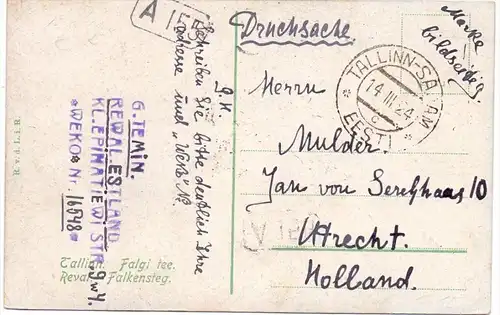 Drucksache.
Marke
bildseitig.
A
TALLINN-SADAM
14 III 24
C
EESTI
g. H
Schreiben Sie bitte deutlich Ihre
Adresse und "Weko" Nr
G. TEMIN.
REWAL. ESTLAND
KL. EPINATIEWI STR. 9 w 4.
* WEKO * Nr. 16948 *
Herrn
Mulder.
Jan van 10
Utrecht.
Holland.
Tallinn. Falgi tee.
Reval. Falkensteg.